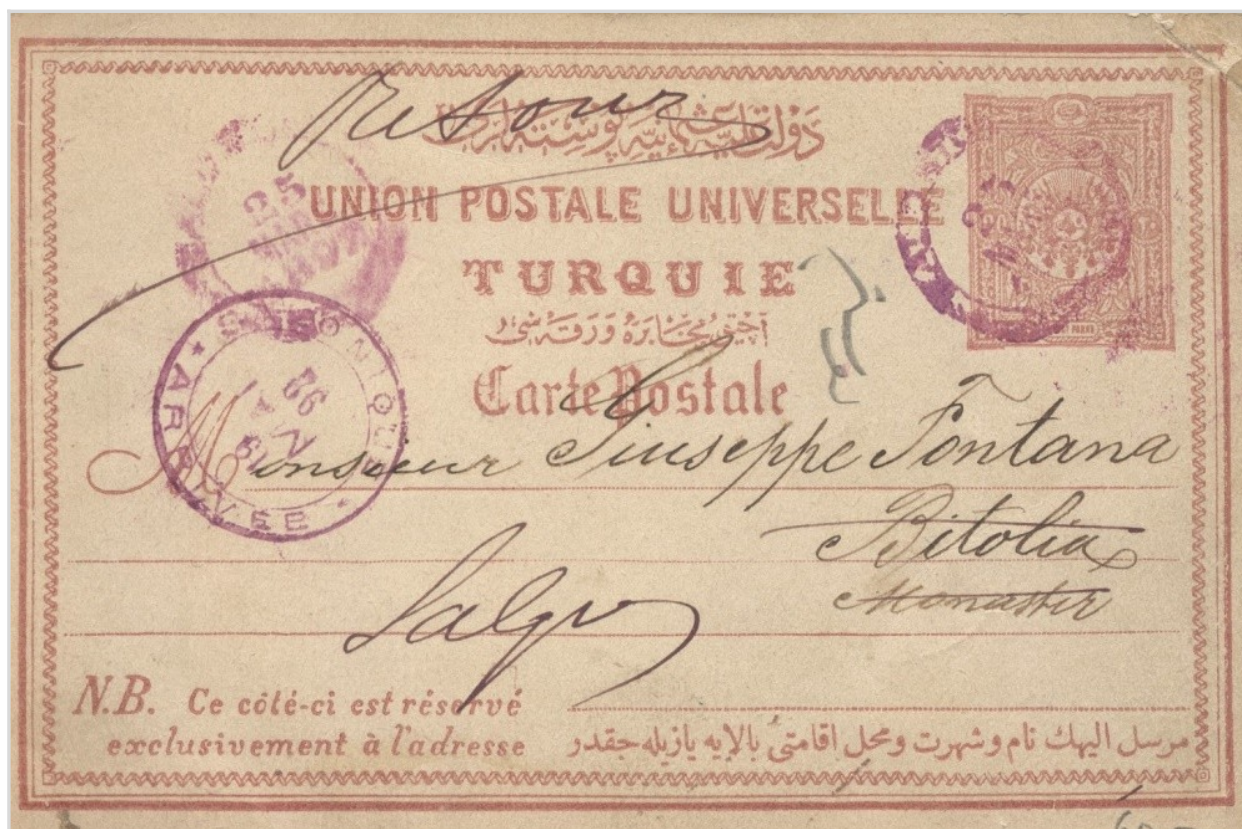 Retour
دولت عليه عثمانيه پوسته لرى
UNION POSTALE UNIVERSELLE
TURQUIE
آچيق مخابره ورقه سى
Carte Postale
Monsieur Giuseppe Fontana
Bitolia
Monastir
SALONIQUE
ARRIVÉE
N.B. Ce côté-ci est réservé
exclusivement à l'adresse
مرسل اليهك نام و شهرت و محل اقامتى بالايه يازيله جقدر